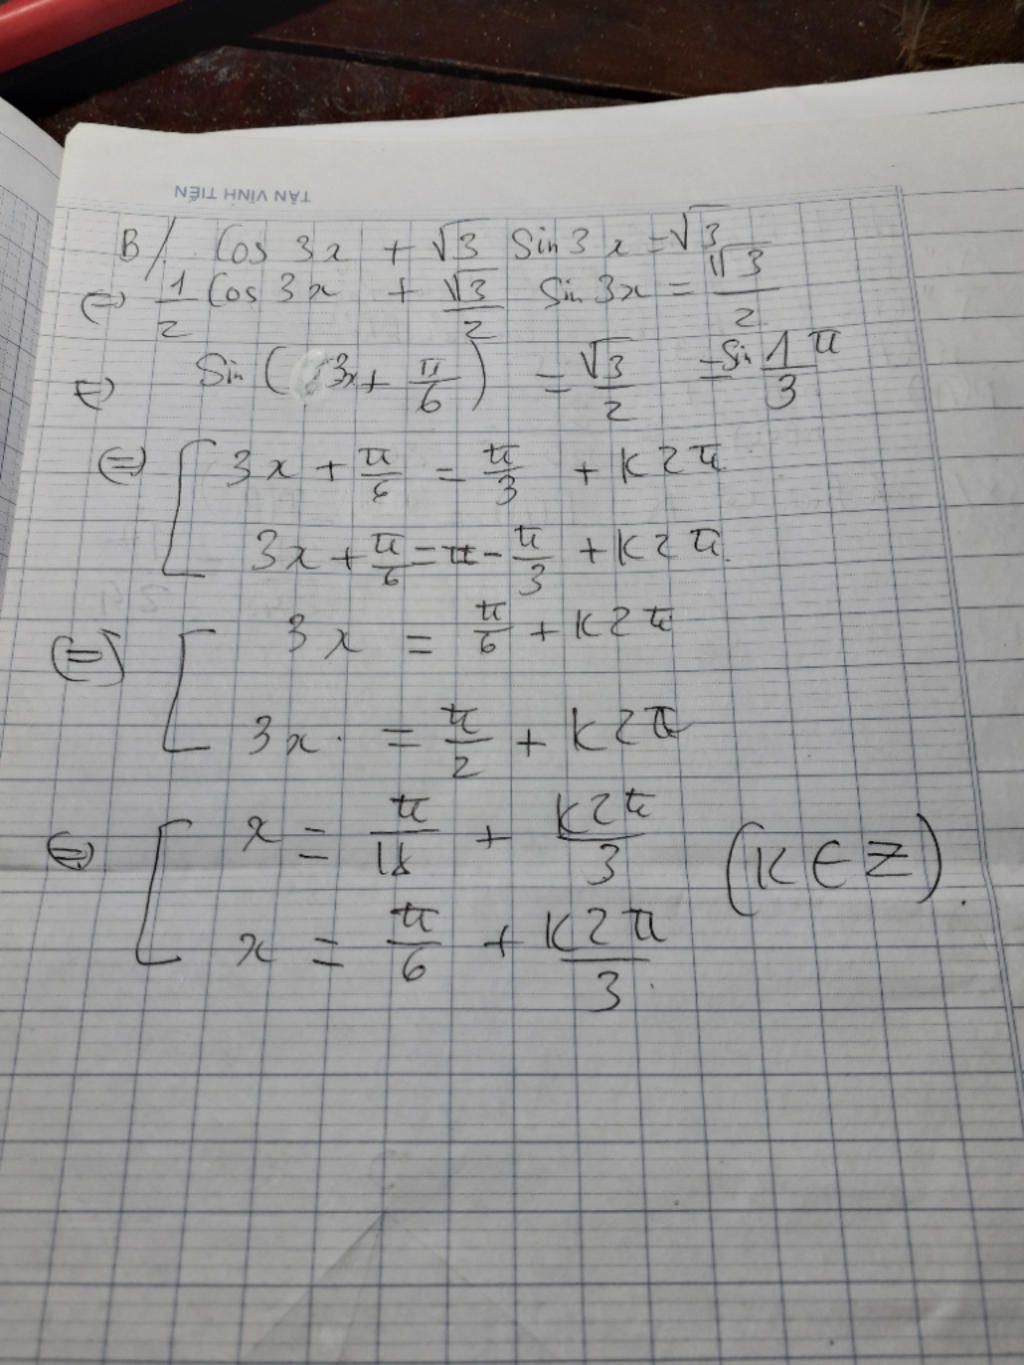 TÂN VĨNH TIẾN
B/ Cos 3x + √3 Sin 3x = √3
(=) 1/2 Cos 3x + √3/2 Sin 3x = √3/2
(=) Sin (3x + π/6) = √3/2 = Sin 1/3 π
(=) [ 3x + π/6 = π/3 + k2π
3x + π/6 = π - π/3 + k2π
(=) [ 3x = π/6 + k2π
3x = π/2 + k2π
(=) [ x = π/18 + k2π/3 (k ∈ Z).
x = π/6 + k2π/3